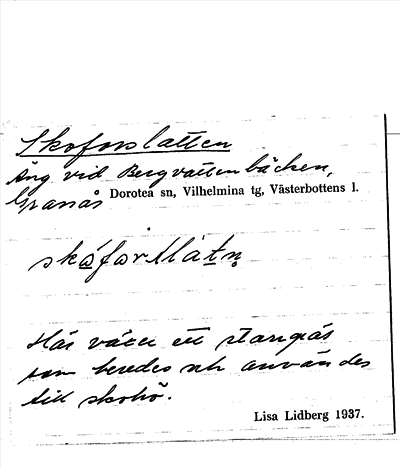 Skoforslatten
Äng vid Bergvattenbäcken,
Granås Dorotea sn, Vilhelmina tg, Västerbottens l.
Här växer ett starrgräs
som beredes och användes
till skohö.
Lisa Lidberg 1937.